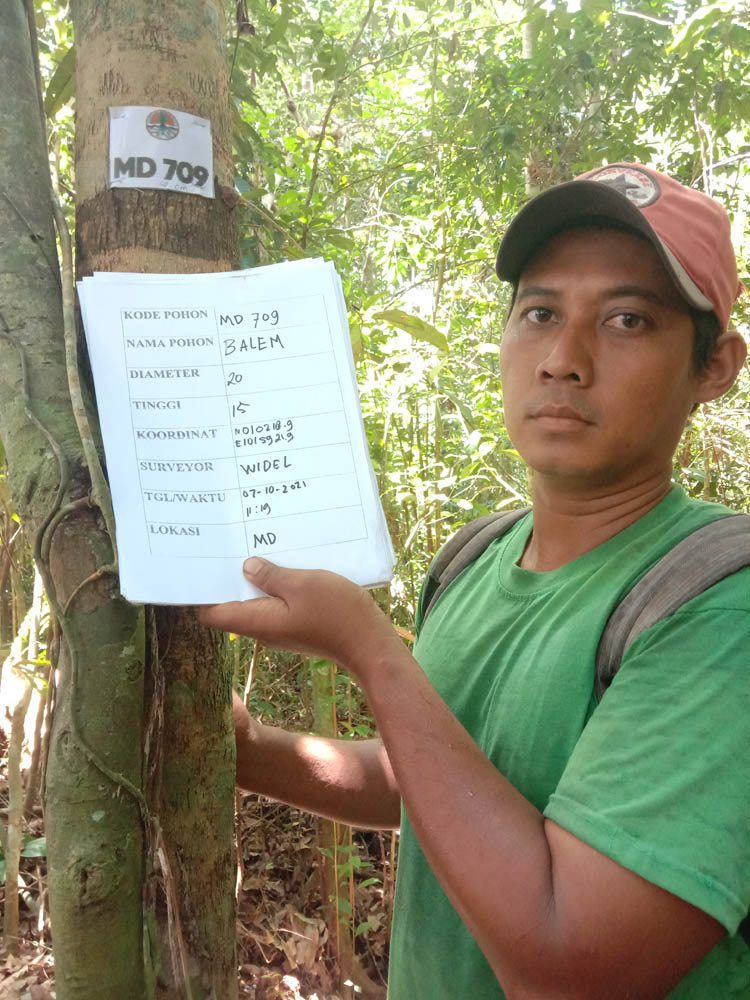 MD 709
KODE POHON MD 709
NAMA POHON BALEM
DIAMETER 20
TINGGI 15
KOORDINAT N010218.9
E1015921.9
SURVEYOR WIDEL
TGL/WAKTU 07-10-2021
11:19
LOKASI MD